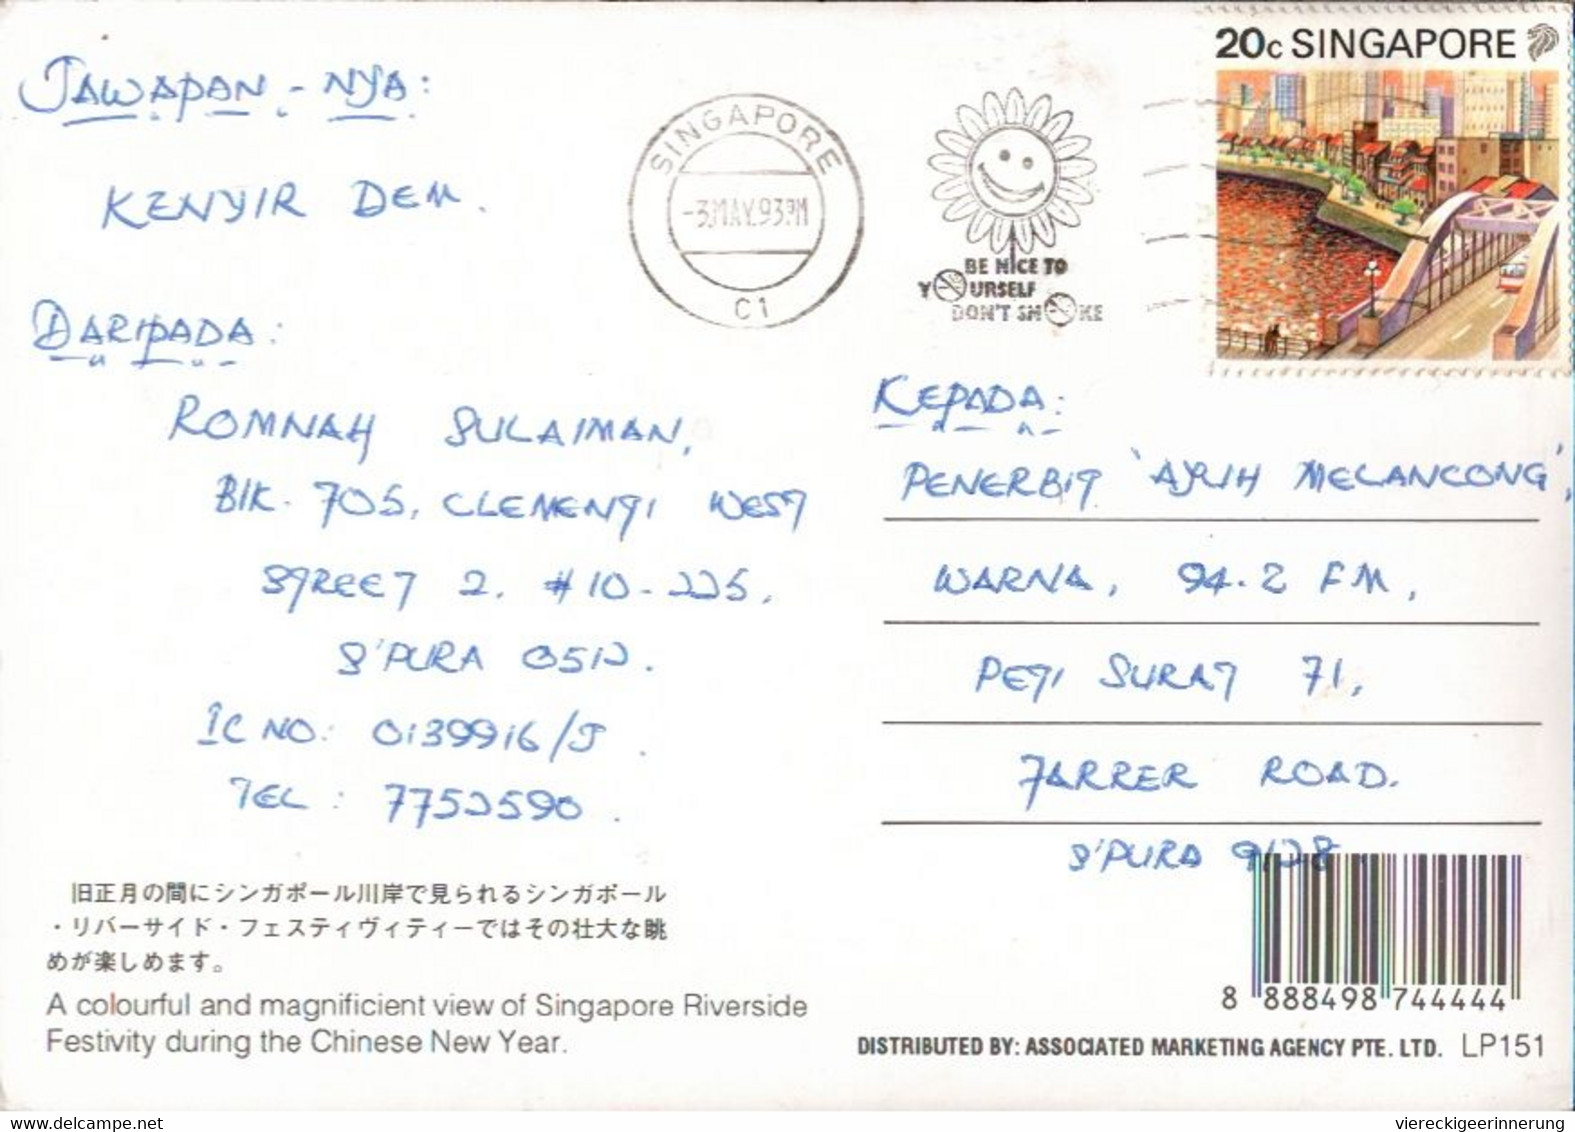 20c SINGAPORE
JAWAPAN - NYA:
KENYIR DEM.
SINGAPORE
-3.MAY.93
C1
BE NICE TO
YOURSELF
DON'T SMOKE
DARIPADA:
ROMNAH SULAIMAN,
BlK. 705, CLEMENTI WEST
STREET 2. #10-225.
S'PURA 0512.
IC NO: 0139916/J.
TEL: 7752590.
KEPADA:
PENERBIT 'AJIH MELANCONG',
WARNA, 94.2 FM,
PETI SURAT 71,
FARRER ROAD.
S'PURA 9128
旧正月の間にシンガポール川岸で見られるシンガポール
・リバーサイド・フェスティヴィティーではその壮大な眺
めが楽しめます。
A colourful and magnificient view of Singapore Riverside
Festivity during the Chinese New Year.
8 888498 744444
DISTRIBUTED BY: ASSOCIATED MARKETING AGENCY PTE. LTD. LP151
viereckigeerinnerung